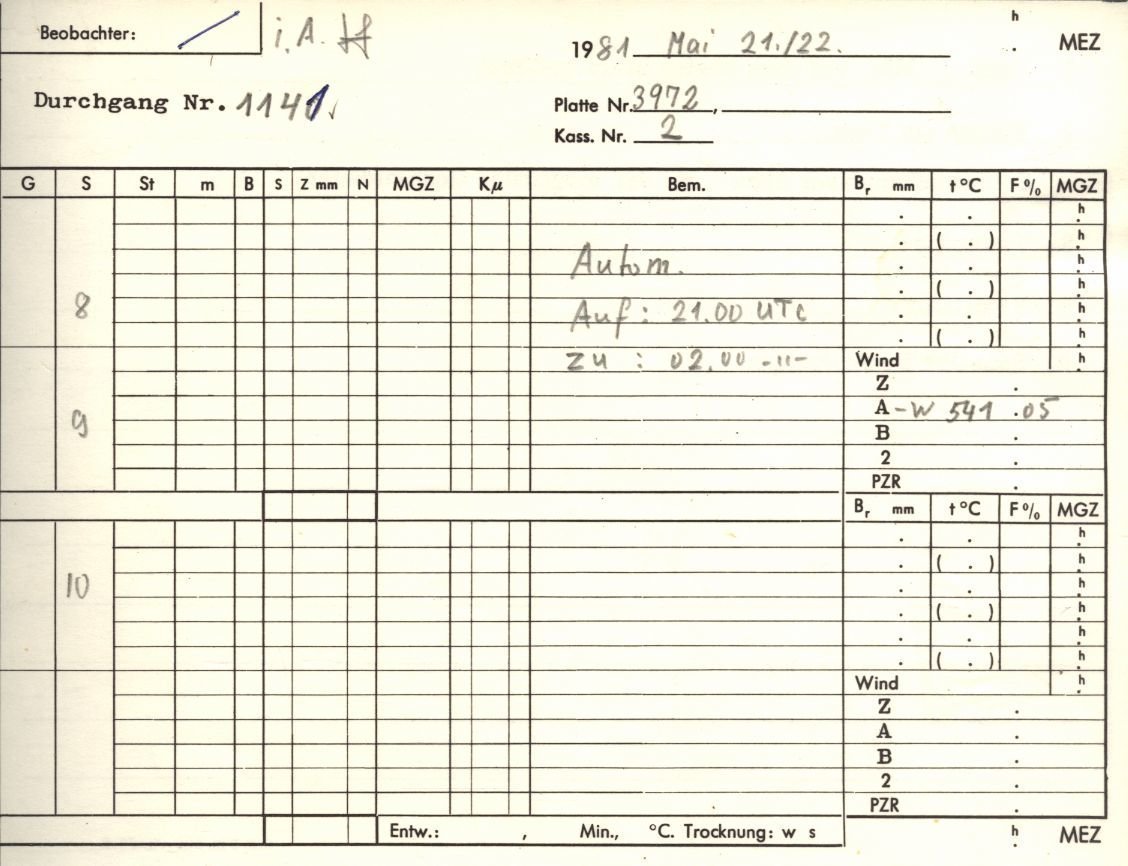 Beobachter: i.A.
1981 Mai 21./22. h . MEZ
Durchgang Nr. 1141
Platte Nr. 3972,
Kass. Nr. 2
G S St m B S Z mm N MGZ Kμ Bem. Br mm t °C F % MGZ
. . h
. ( . ) h
Autom. . . h
. ( . ) h
8 Auf: 21.00 UTC . . h
. ( . ) h
zu : 02.00 -"- Wind h
Z .
9 A -W 541 .05
B .
2 .
PZR .
Br mm t °C F % MGZ
. . h
. ( . ) h
10 . . h
. ( . ) h
. . h
. ( . ) h
Wind h
Z .
A .
B .
2 .
PZR .
Entw.: , Min., °C. Trocknung: w s h . MEZ